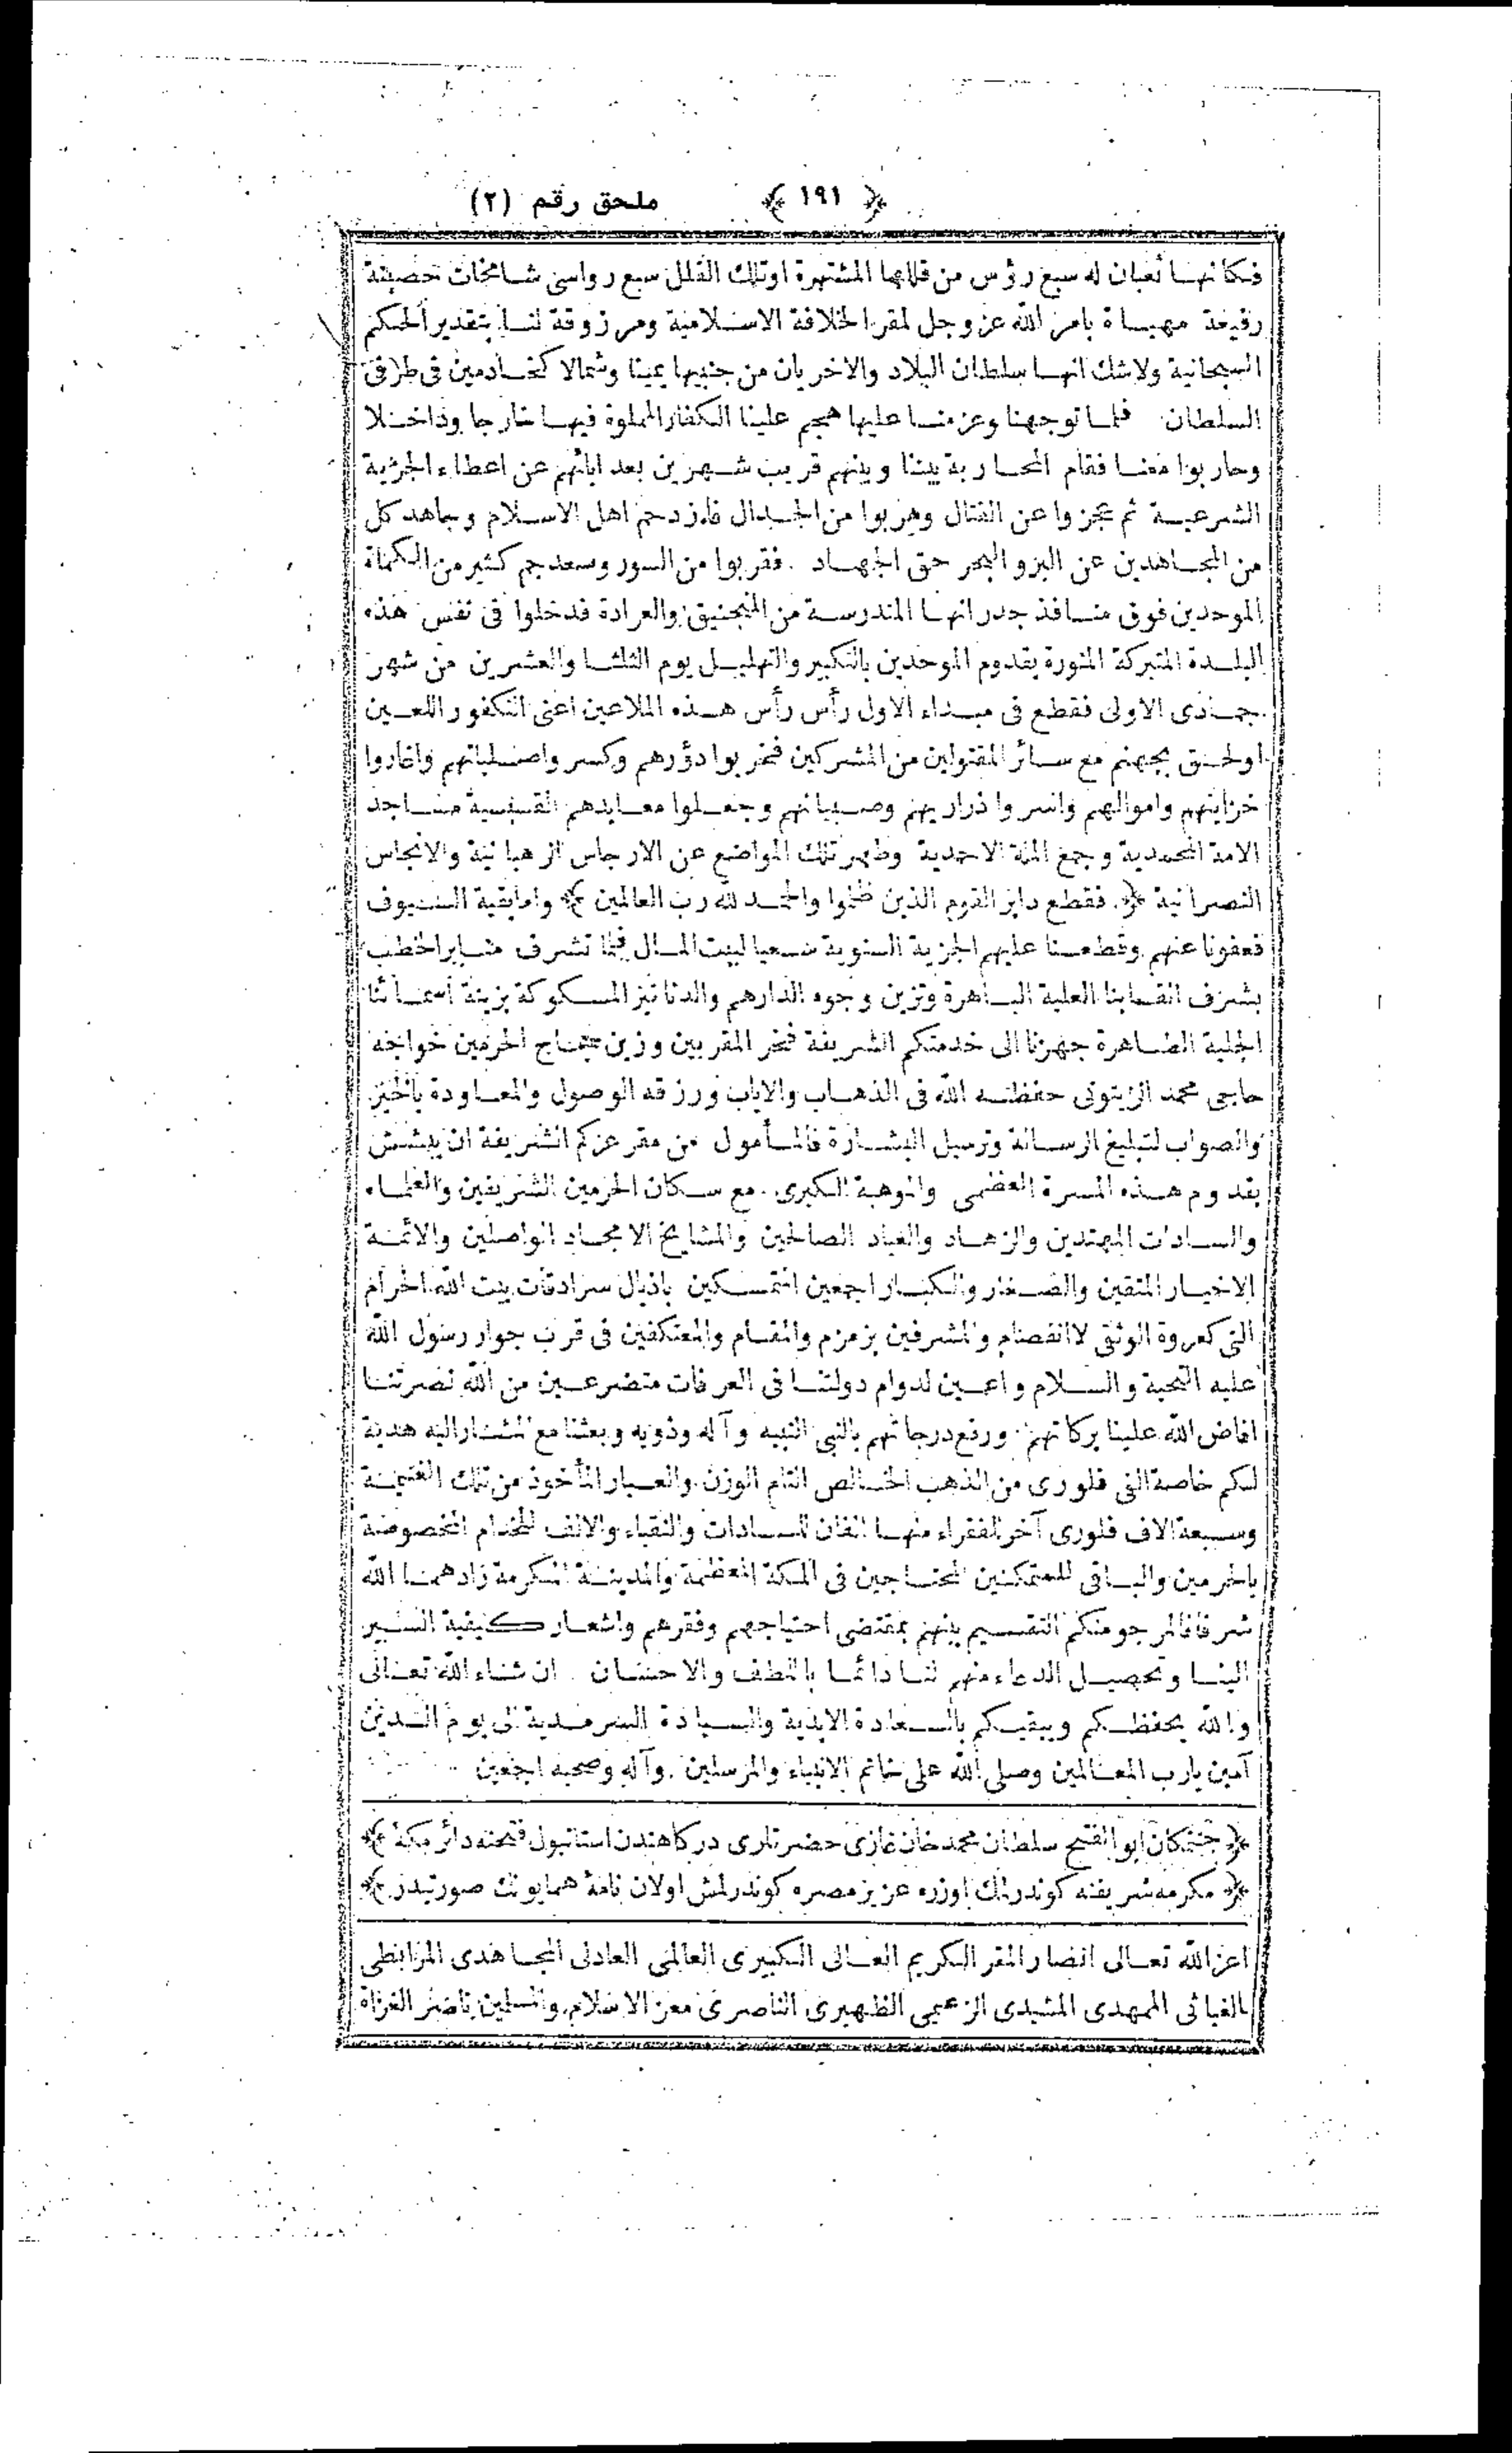 ﴿ ١٩١ ﴾ ملحق رقم (٢)
فكانها ثعبان له سبع رؤس من قلاعها المشتهرة او تلك القلل سبع رواسى شامخات حصينة
رفيعة مهياة بامر الله عز وجل لمقر الخلافة الاسلامية ومرزوقة لنا بتقدير الحكم
السبحانية ولاشك انها سلطان البلاد والاخريان من جنبيها يمينا وشمالا كخادمين فى طرفى
السلطان فلما توجهنا وعزمنا عليها هجم علينا الكفار المملوة فيها خارجا وداخلا
وحاربوا معنا فقام المحاربة بيننا وبينهم قريب شهرين بعد ابائهم عن اعطاء الجزية
الشرعية ثم عجزوا عن القتال وهربوا من الجدال فازدحم اهل الاسلام وجاهد كل
من المجاهدين عن البر والبحر حق الجهاد . فقربوا من السور وسعد جم كثير من الكماة
الموحدين فوق منافذ جدرانها المندرسة من المنجنيق والعرادة فدخلوا فى نفس هذه
البلدة المتبركة المنورة بقدوم الموحدين بالتكبير والتهليل يوم الثلثا والعشرين من شهر
جمادى الاولى فقطع فى مبداء الاول رأس رأس هذه الملاعين اعنى التكفور اللعين
اولحق بجهنم مع سائر المقتولين من المشركين فخربوا دؤرهم وكسروا صلبانهم واغاروا
خزاينهم واموالهم واسروا ذراريهم وصبيانهم وجعلوا معابدهم القسيسية مساجد
الامة المحمدية وجمع الملة الاحمدية وطهر تلك المواضع عن الارجاس الرهبانية والانجاس
النصرانية ﴿ فقطع دابر القوم الذين ظلموا والحمد لله رب العالمين ﴾ واما بقية السيوف
فعفونا عنهم وقطعنا عليهم الجزية السنوية سعيا لبيت المال فلما تشرف منابر الخطب
بشرف القابنا العلية الباهرة وتزين وجوه الدارهم والدنانير المسكوكة بزينة أسمائنا
الجلية الظاهرة جهزنا الى خدمتكم الشريفة فخر المقربين وزين حجاج الحرمين خواجه
حاجى محمد الزيتونى حفظه الله فى الذهاب والاياب ورزقه الوصول والمعاودة بالخير
والصواب لتبليغ الرسالة وترسيل البشارة فالمأمول من مقر عزكم الشريفة ان يبشش
بقدوم هذه المسرة العظمى والموهبة الكبرى مع سكان الحرمين الشريفين والعلماء
والسادات المهتدين والزهاد والعباد الصالحين والمشايخ الامجاد الواصلين والائمة
الاخيار المتقين والصغار والكبار اجمعين المتمسكين باذيال سرادقات بيت الله الحرام
التى كعروة الوثقى لا انفصام والمشرفين بزمزم والمقام والمعتكفين فى قرب جوار رسول الله
عليه التحية والسلام داعين لدوام دولتنا فى العرفات متضرعين من الله نصرتنا
افاض الله علينا بركاتهم ورفع درجاتهم بالنبى النبيه وآله وذويه وبعثنا مع المشار اليه هدية
لكم خاصة الفى فلورى من الذهب الخالص التام الوزن والعيار المأخوذ من تلك الغنيمة
وسبعة الاف فلورى آخر للفقراء منها الفان للسادات والنقباء والالف للخدام المخصوصة
بالحرمين والباقى للمتمكنين المحتاجين فى المكة المعظمة والمدينة المكرمة زادهما الله
شرفا فالمرجو منكم التقسيم بينهم بمقتضى احتياجهم وفقرهم واشعار كيفية السير
الينا وتحصيل الدعاء منهم لنا دائما باللطف والاحسان . ان شاء الله تعالى
والله يحفظكم ويبقيكم بالسعادة الابدية والسيادة السرمدية الى يوم الدين
آمين يارب العالمين وصلى الله على خاتم الانبياء والمرسلين . وآله وصحبه اجمعين
﴿ جنتمكان ابو الفتح سلطان محمد خان غازى حضرتلرى دركاهندن استانبول فتحنه دائر مكهٔ ﴾
﴿ مكرمه شريفنه كوندرلمك اوزره عزيز مصره كوندرلمش اولان نامهٔ همايونك صورتيدر ﴾
اعز الله تعالى انصار المقر الكريم العالى الكبيرى العالمى العادلى المجاهدى المرابطى
الغياثى الممهدى المشيدى الزعيمى الظهيرى الناصرى معز الاسلام والمسلمين ناصر الغزاة